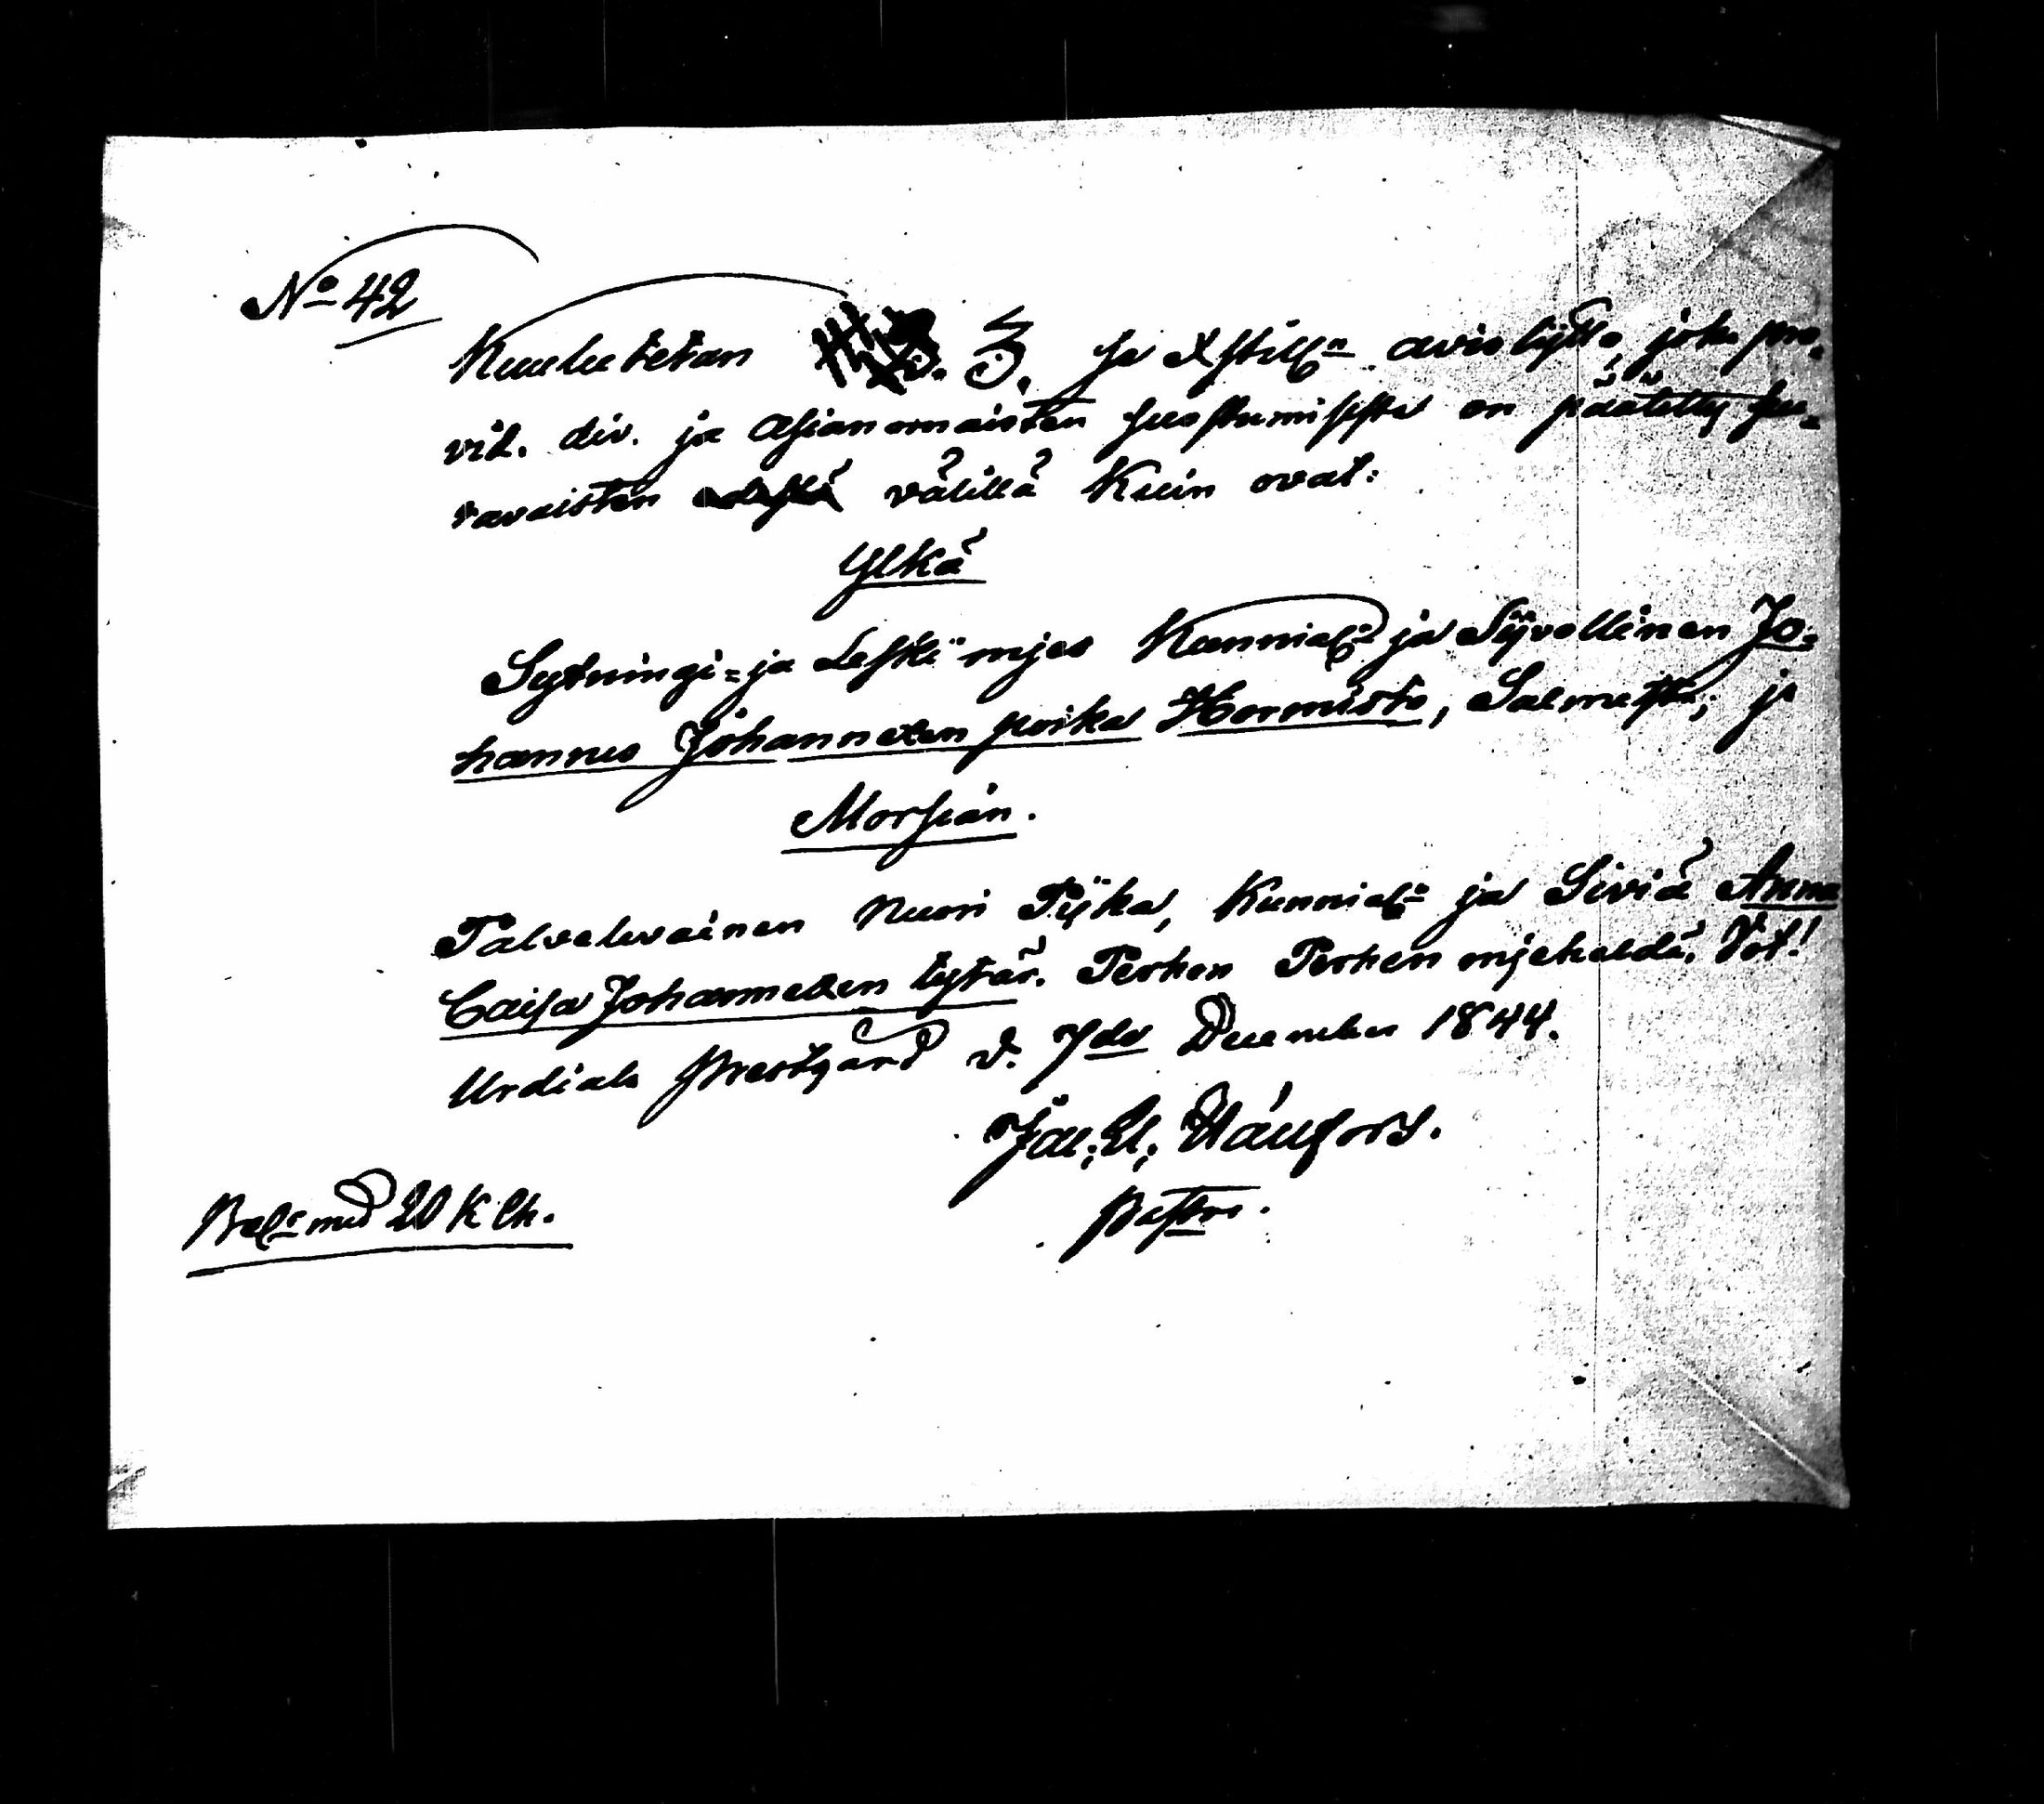 No 42
Kuulutetan 3. se Xstill:n avioliito, joka pro-
vid. div. ja asianomaisten suostumisesta on päätetty seu-
ravaisten välillä kuin ovat:
Ylkä
Sytningi- ja Leski mjes Kunnial: ja Siivollinen Jo-
hannes Johannexen poika Hormisto, Salmesta; ja
Morsian.
Palveluvainen nuori Pijka, Kunnial: ja Siviä Anna
Caisa Johannexen tytär. Perhon Perhen mjehaldä. Vot!
Urdiala Prestgård d. 7de December 1844.
Jac. U.
Pastor.
Bel: med 20 K